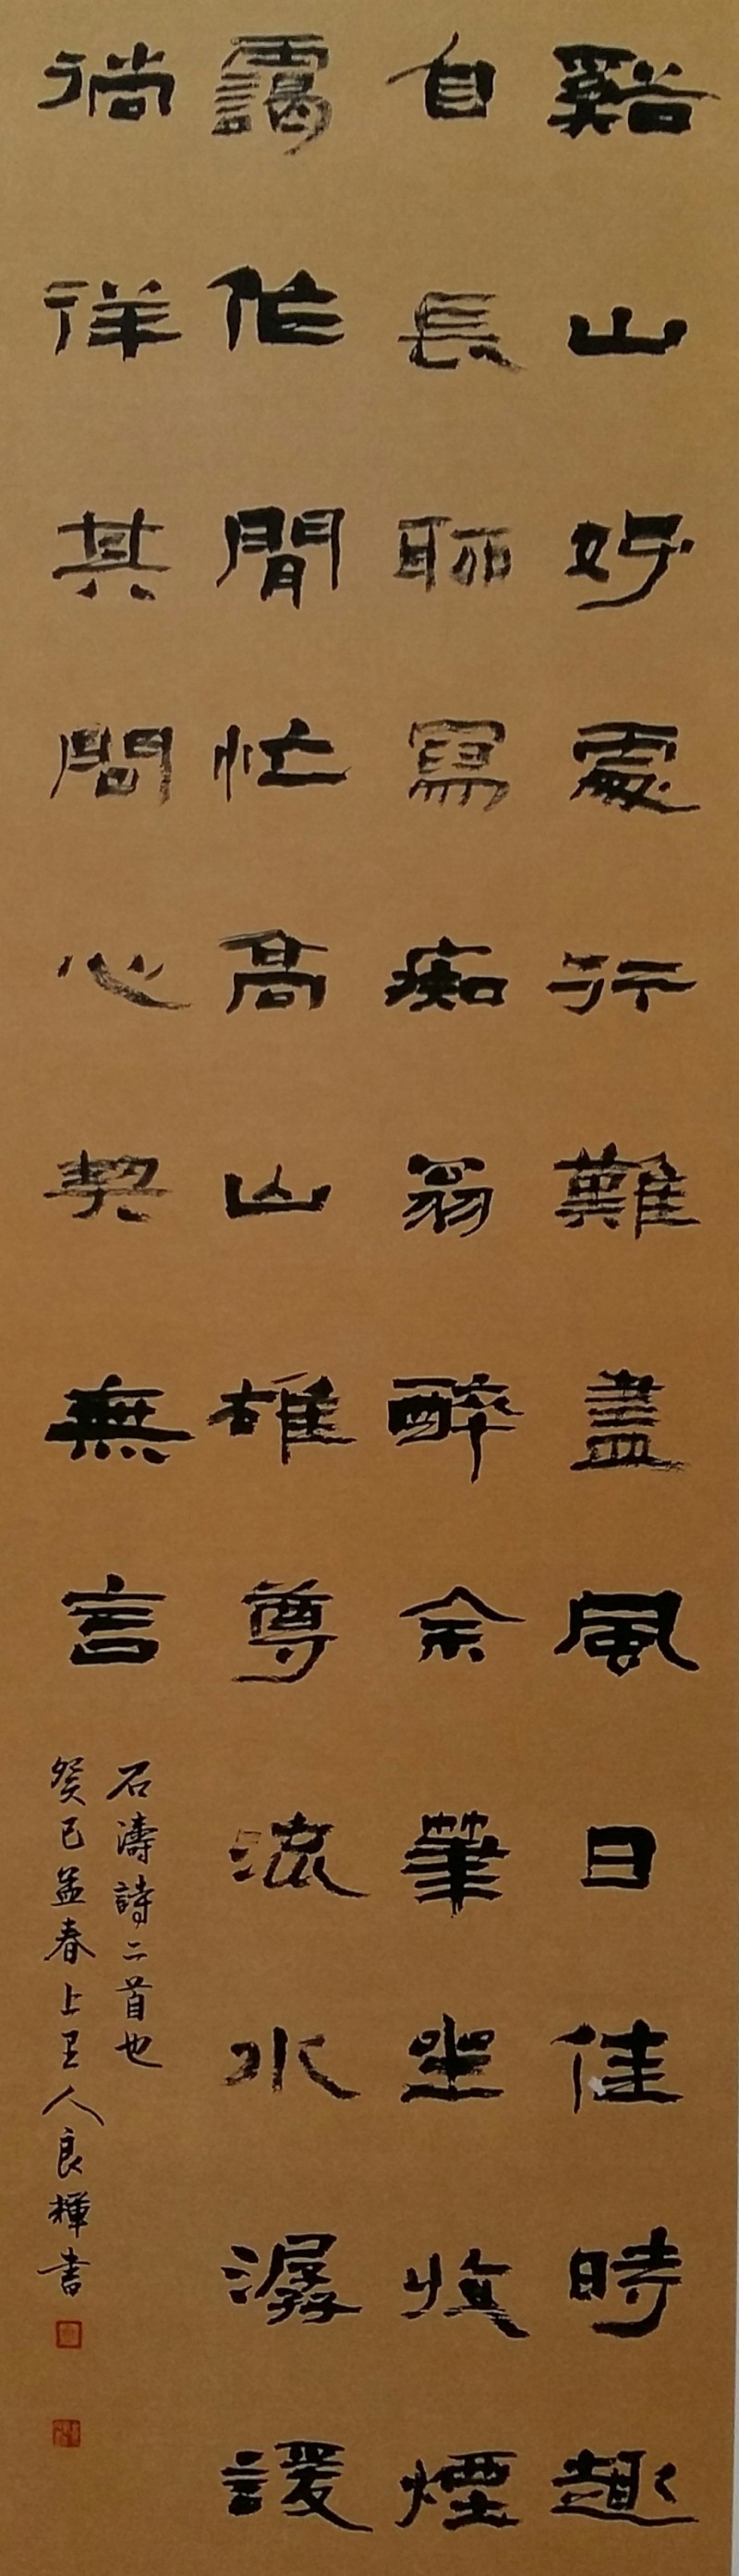 谿山好處行難盡風日佳時趣
自長聊寫痴翁醉余筆坐收煙
靄作閒忙高山雄尊流水潺諼
徜徉其間心契無言
石濤詩二首也
癸巳孟春上王人良輝書